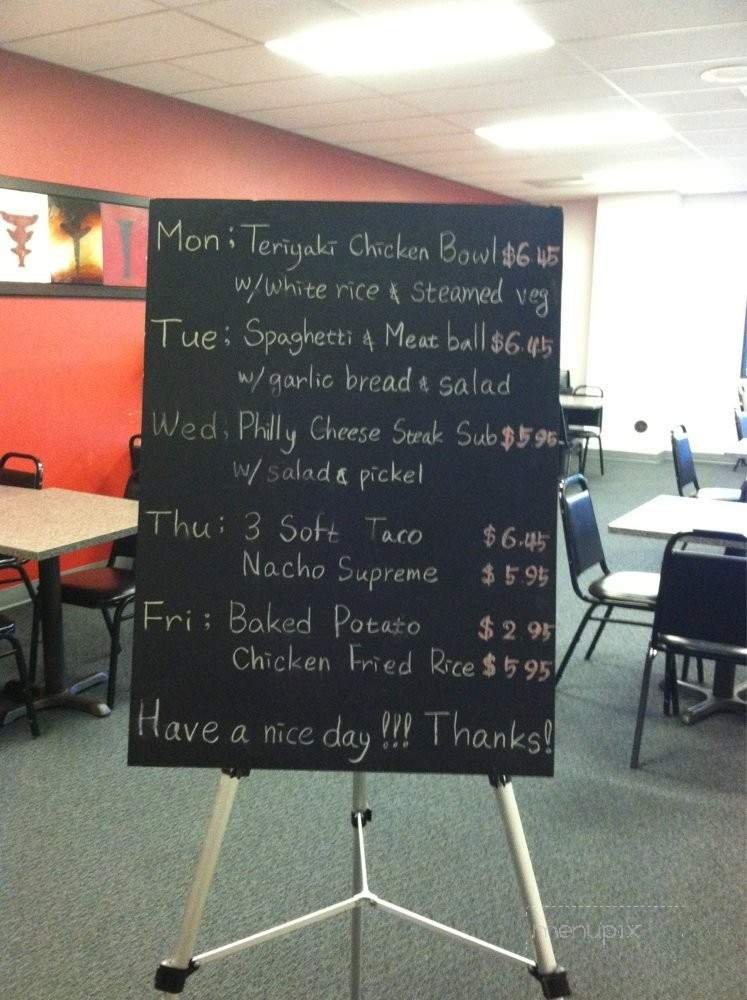 Mon; Teriyaki Chicken Bowl $6.45
w/white rice & steamed veg
Tue; Spaghetti & Meat ball $6.45
w/garlic bread & salad
Wed; Philly Cheese Steak Sub $5.95
w/salad & pickel
Thu; 3 Soft Taco $6.45
Nacho Supreme $5.95
Fri; Baked Potato $2.95
Chicken Fried Rice $5.95
Have a nice day!!! Thanks!
menupix